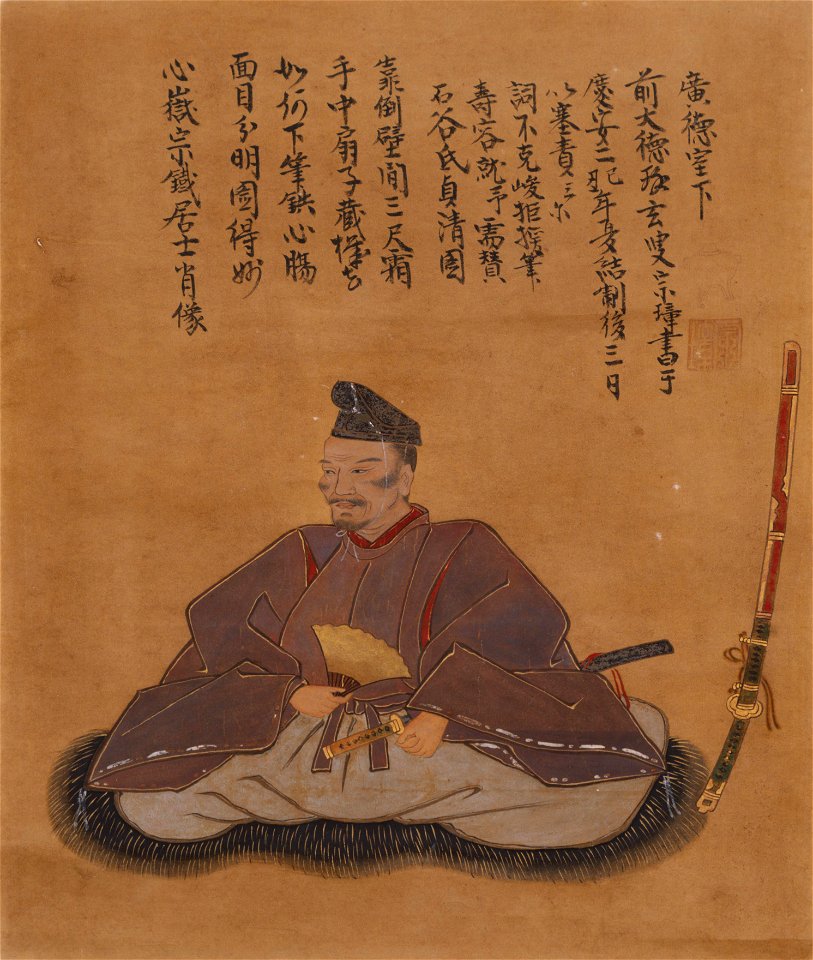 心嶽宗鐵居士肖像
面目分明圖得妙
如何下筆鉄心腸
手中扇子蔵機去
靠倒壁間三尺霜
石谷氏貞清圖
壽容就予需賛
詞不克峻拒援筆
以塞責云尓
慶安二己丑年夏結制後三日
前大德玄叟宗璋書于
廣德室下